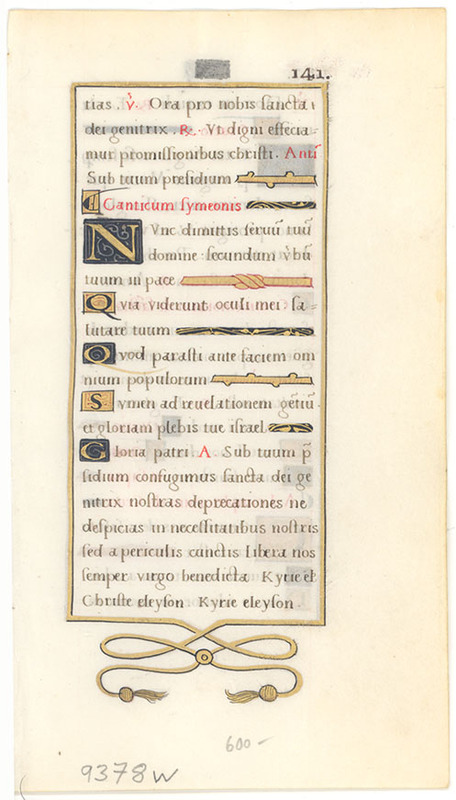 141.
tias. v. Ora pro nobis sancta
dei genitrix. R. Vt digni efficia-
mur promissionibus christi. Antī
Sub tuum presidium
Canticum symeonis
Nvnc dimittis seruū tuū
domine secundum v̇bū
tuum in pace
Qvia viderunt oculi mei: sa-
lutare tuum
Qvod parasti ante faciem om
nium populorum
Svmen ad reuelationem gētiū
et gloriam plebis tue israel
Gloria patri. A. Sub tuum p̄
sidium confugimus sancta dei ge
nitrix nostras deprecationes ne
despicias in necessitatibus nostris
sed a periculis cunctis libera nos
semper virgo benedicta Kyrie el
Christe eleyson Kyrie eleyson.
600-
9378W